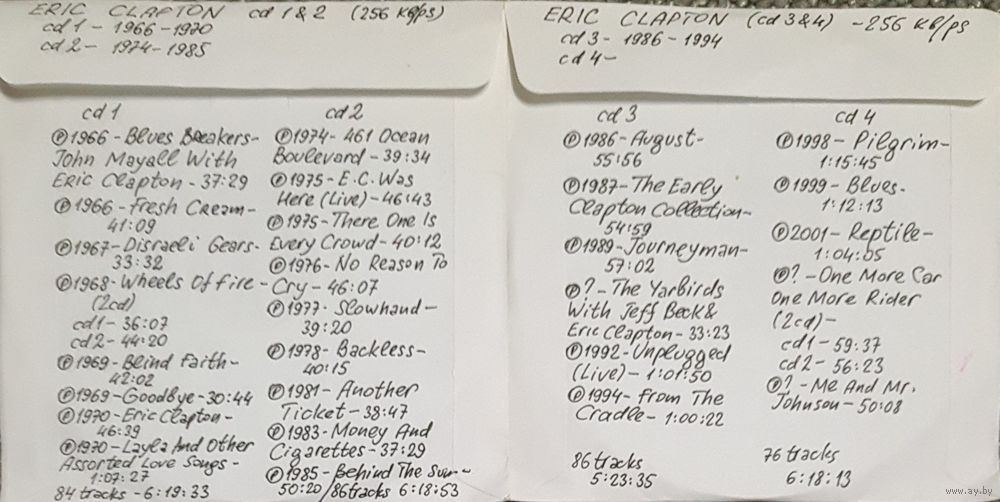 ERIC CLAPTON cd 1&2 (256 KB/ps)
cd 1 - 1966-1970
cd 2 - 1974-1985
cd 1
Ⓟ1966-Blues Breakers-
John Mayall With
Eric Clapton - 37:29
Ⓟ1966-Fresh Cream-
41:09
Ⓟ1967-Disraeli Gears-
33:32
Ⓟ1968-Wheels Of Fire-
(2cd)
cd1-36:07
cd2-44:20
Ⓟ1969-Blind Faith-
42:02
Ⓟ1969-Goodbye-30:44
Ⓟ1970-Eric Clapton-
46:39
Ⓟ1970-Layla And Other
Assorted Love Songs-
1:07:27
84 tracks - 6:19:33
cd 2
Ⓟ1974-461 Ocean
Boulevard-39:34
Ⓟ1975-E.C. Was
Here (Live)-46:43
Ⓟ1975-There One Is
Every Crowd-40:12
Ⓟ1976-No Reason To
Cry-46:07
Ⓟ1977-Slowhand-
39:20
Ⓟ1978-Backless-
40:15
Ⓟ1981-Another
Ticket-38:47
Ⓟ1983-Money And
Cigarettes-37:29
Ⓟ1985-Behind The Sun-
50:20/86tracks 6:18:53
ERIC CLAPTON (cd 3&4) -256 KB/ps
cd 3 - 1986-1994
cd 4-
cd 3
Ⓟ1986-August-
55:56
Ⓟ1987-The Early
Clapton Collection-
54:59
Ⓟ1989-Journeyman-
57:02
Ⓟ?-The Yarbirds
With Jeff Beck&
Eric Clapton-33:23
Ⓟ1992-Unplugged
(Live)-1:01:50
Ⓟ1994-From The
Cradle-1:00:22
86 tracks
5:23:35
cd 4
Ⓟ1998-Pilgrim-
1:15:45
Ⓟ1999-Blues-
1:12:13
Ⓟ2001-Reptile-
1:04:05
Ⓟ?-One More Car
One More Rider
(2cd)-
cd1-59:37
cd2-56:23
Ⓟ?-Me And Mr.
Johnson-50:08
76 tracks
6:18:13
www.ay.by